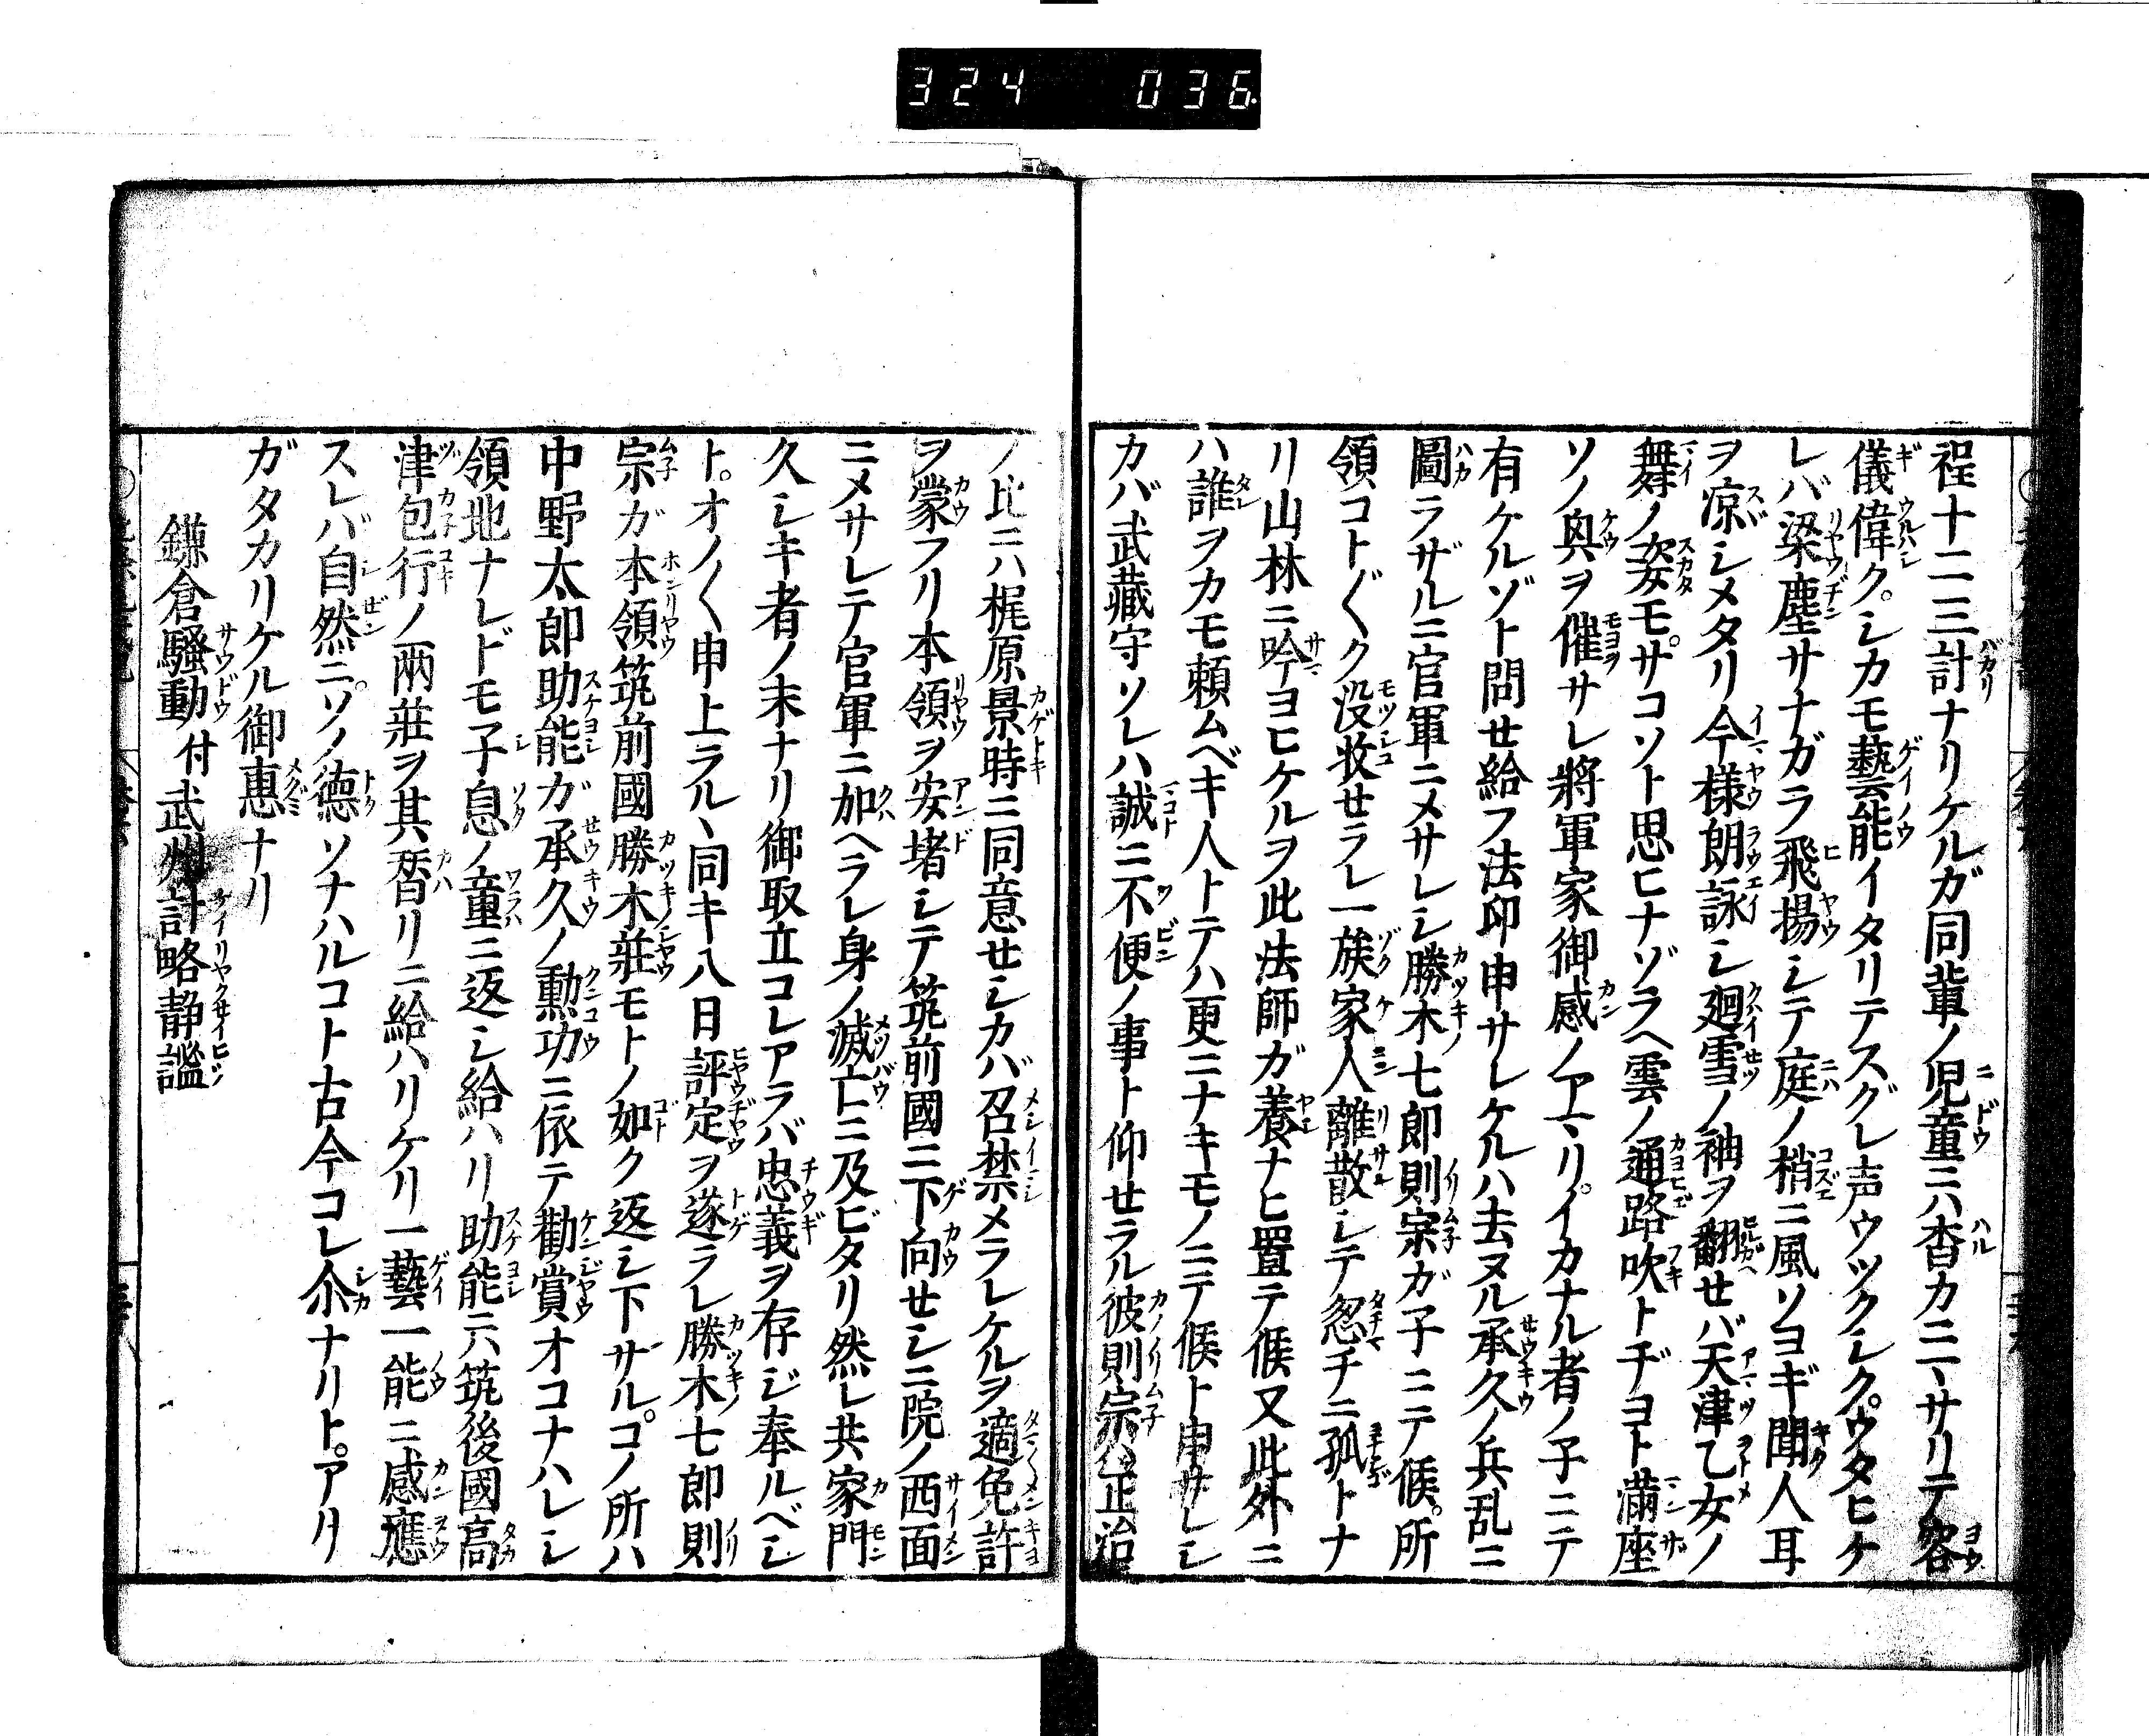 324 036
程十二三計ナリケルガ同輩ノ児童ニハ杳カニマサリテ容
儀偉ク。シカモ藝能イタリテスグレ声ウツクシク。ウタヒケ
レバ梁塵サナガラ飛揚シテ庭ノ梢ニ風ソヨギ聞人耳
ヲ凉シメタリ今様朗詠シ廻雪ノ袖ヲ翻セバ天津乙女ノ
舞ノ姿モ。サコソト思ヒナゾラヘ雲ノ通路吹トヂヨト滿座
ソノ興ヲ催サレ將軍家御感ノアマリ。イカナル者ノ子ニテ
有ケルゾト問セ給フ法印申サレケルハ去ヌル承久ノ兵乱ニ
圖ラザルニ官軍ニメサレシ勝木七郎則宗ガ子ニテ候。所
領コト〴〵ク没收セラレ一族家人離散シテ忽チニ孤トナ
リ山林ニ吟ヨヒケルヲ此法師ガ養ナヒ置テ候又此外ニ
ハ誰ヲカモ頼ムベキ人トテハ更ニナキモノニテ候ト申サレシ
カバ武藏守ソレハ誠ニ不便ノ事ト仰セラル彼則宗ハ正治
ノ比ニハ梶原景時ニ同意セシカバ召禁メラレケルヲ適免許
ヲ蒙フリ本領ヲ安堵シテ筑前國ニ下向セシニ院ノ西面
ニメサレテ官軍ニ加ヘラレ身ノ滅亡ニ及ビタリ然レ共家門
久シキ者ノ末ナリ御取立コレアラバ忠義ヲ存ジ奉ルベシ
ト。オノ〳〵申上ラル、同キ八日評定ヲ遂ラレ勝木七郎則
宗ガ本領筑前國勝木荘モトノ如ク返シ下サル。コノ所ハ
中野太郎助能ガ承久ノ勳功ニ依テ勸賞オコナハレシ
領地ナレドモ子息ノ童ニ返シ給ハリ助能ニハ筑後國高
津包行ノ兩莊ヲ其替リニ給ハリケリ一藝一能ニ感應
スレバ自然ニ。ソノ德ソナハルコト古今コレ尒ナリト。アリ
ガタカリケル御惠ナリ
鎌倉騷動付武州計略静謐